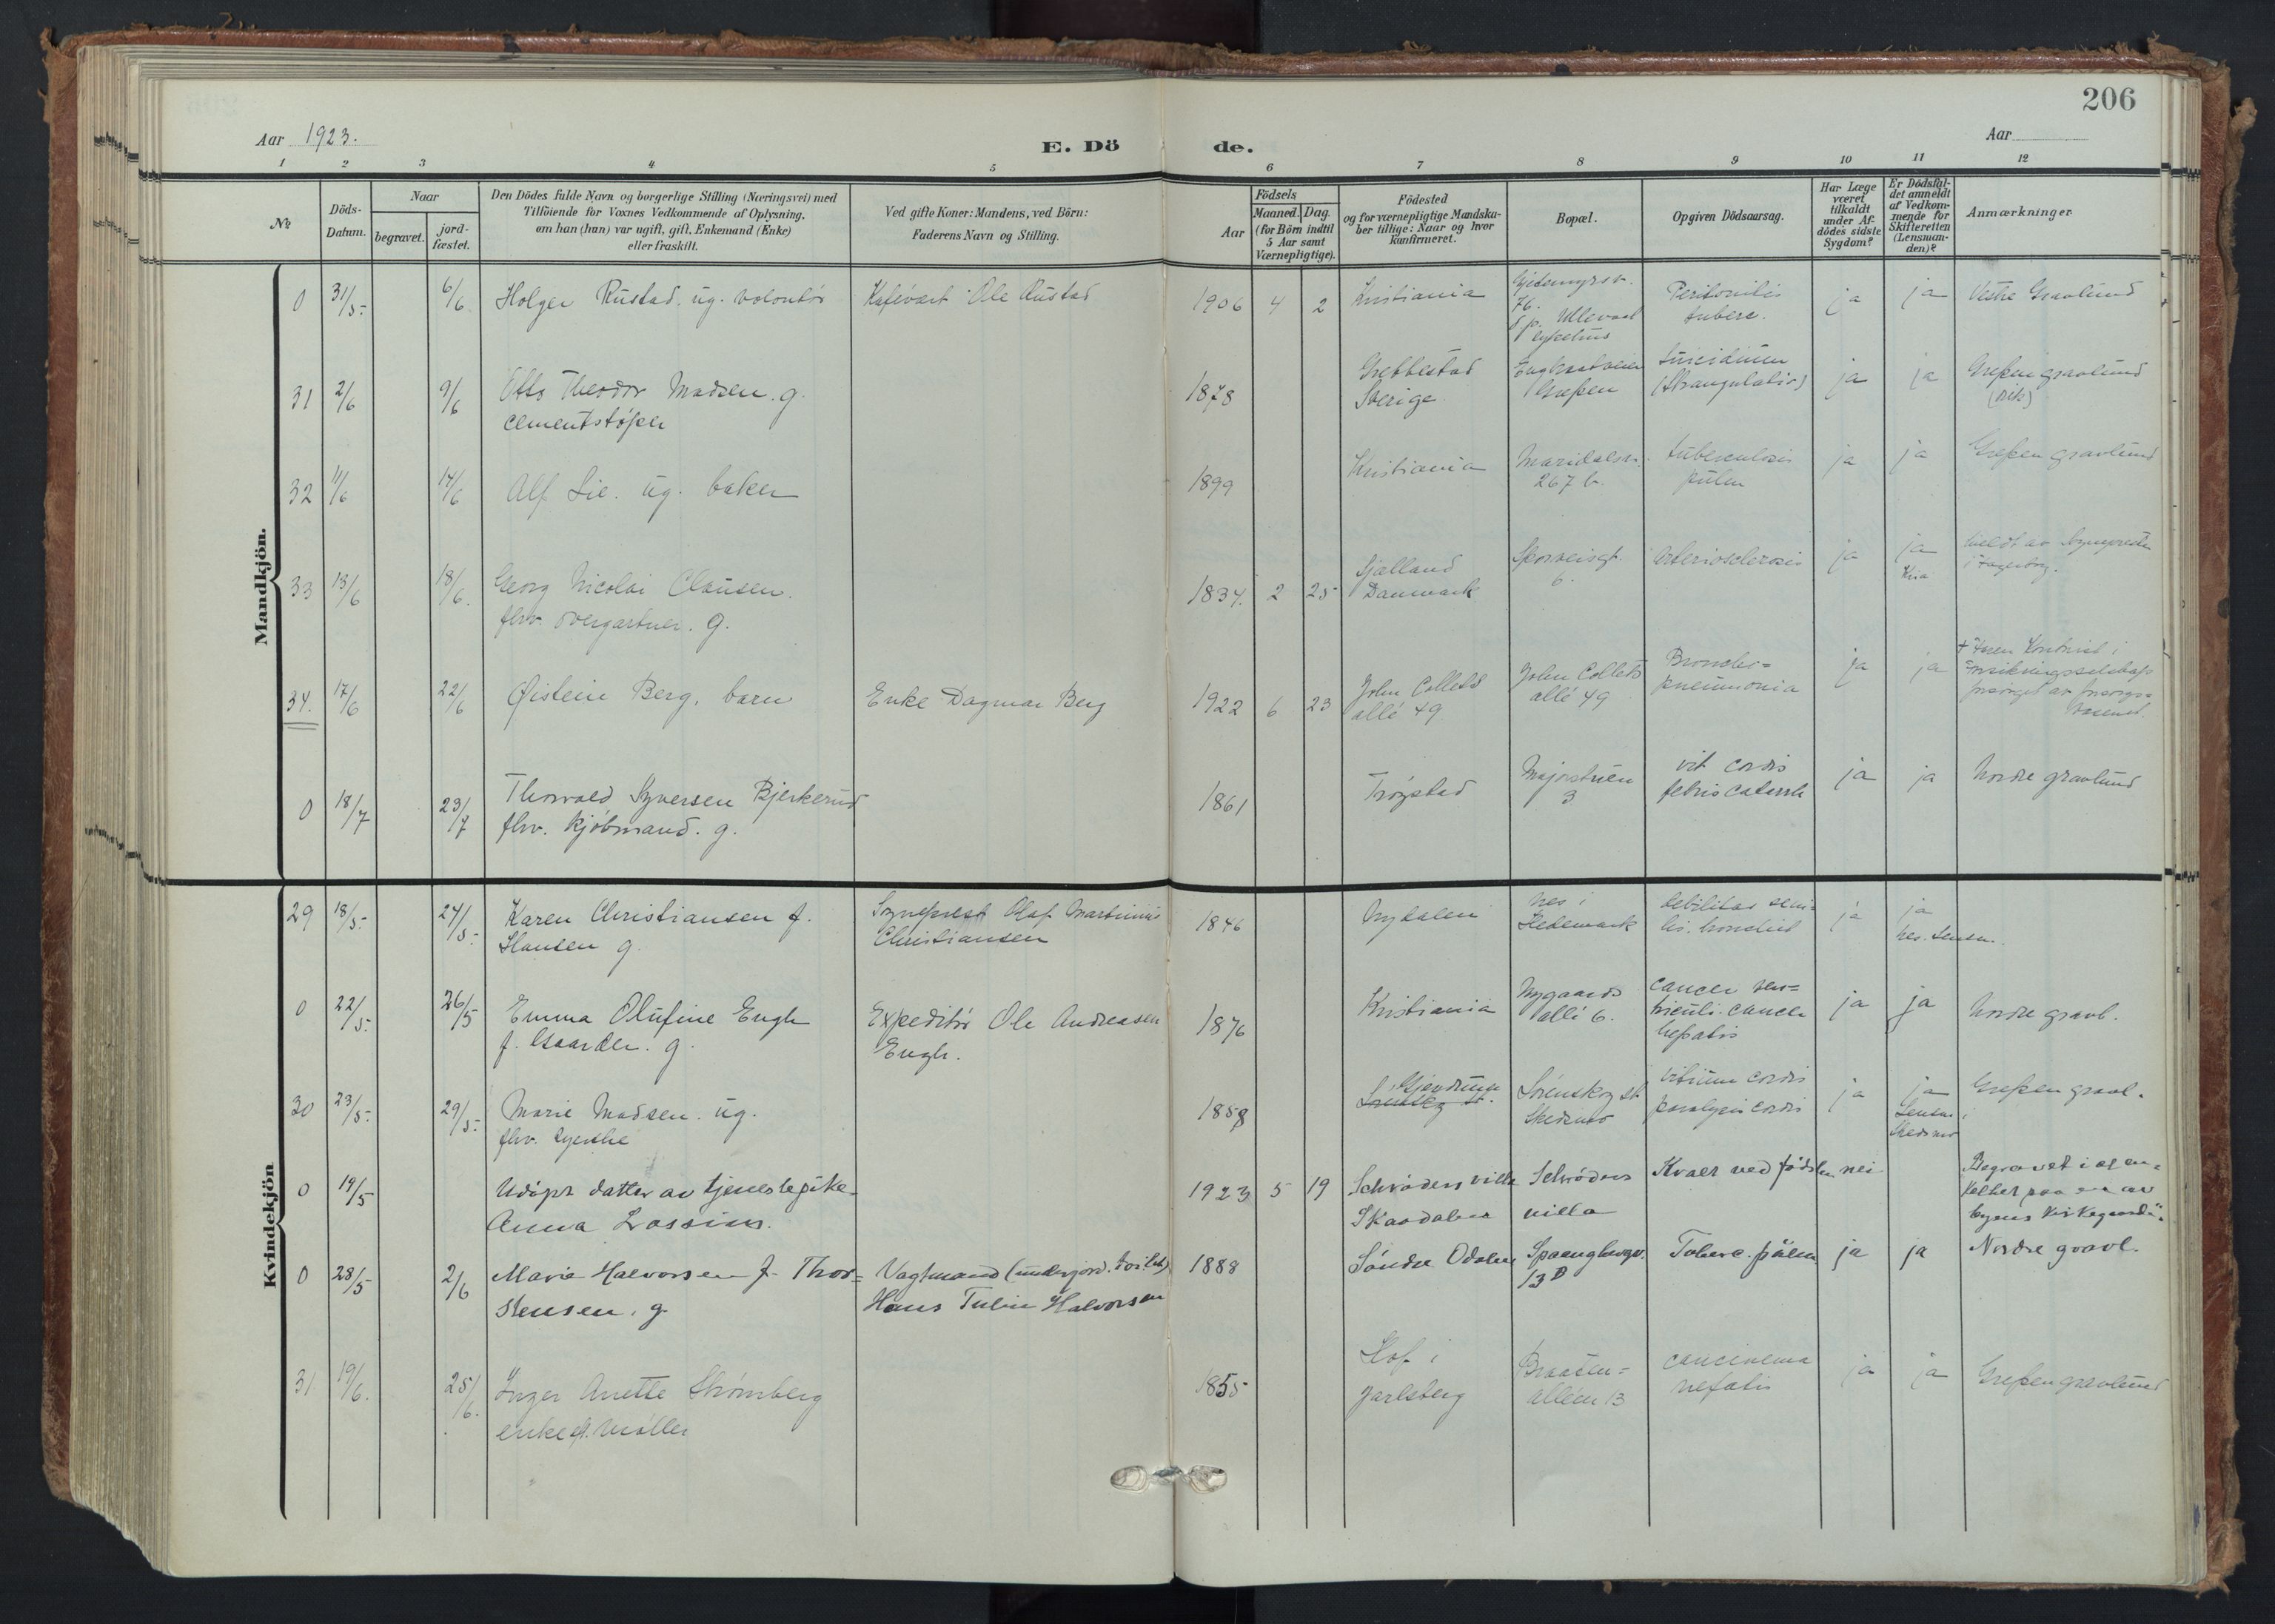 206
Aar 1923.
E. Dö de.
Aar
1 2 3 4 5 6 7 8 9 10 11 12
No
Döds-Datum.
Naar
begravet.
jord-fæstet.
Den Dödes fulde Navn og borgerlige Stilling (Næringsvei) med
Tilföiende for Voxnes Vedkommende af Oplysning,
om han (hun) var ugift, gift, Enkemand (Enke)
eller fraskilt.
Ved gifte Koner: Mandens, ved Börn:
Faderens Navn og Stilling.
Födsels
Aar
Maaned. Dag.
(for Börn indtil
5 Aar samt
Værnepligtige).
Födested
og for værnepligtige Mandska-
ber tillige: Naar og hvor
konfirmeret.
Bopæl.
Opgiven Dödsaarsag.
Har Læge
været
tilkaldt
under Af-
dödes sidste
Sygdom?
Er Dödsfal-
det anmeldt
af Vedkom-
mende for
Skifteretten
(Lensman-
den)?
Anmærkninger
Mandkjön.
0 31/5 6/6 Holger Rustad. ug. volontör Kafévært Ole Rustad 1906 4 2 Kristiania
76.
Ullevaal
Peritonitis
tuberc.
ja ja Vestre Gravlund
31 2/6 9/6 Otto Theodor Madsen. g.
cementstöper
1878
Grebbestad
Sverige
Grefsen
Suicidium
(Strangulatio)
ja ja Grefsen gravlund
32 11/6 14/6 Alf Lie. ug. baker 1899 Kristiania
Maridalsv.
267 b.
tuberculosis
pulm
ja ja Grefsen gravlund
33 13/6 18/6. Georg Nicolai Clausen.
fhv. overgartner. g.
1834. 2 25
Sjælland
Danmark
Sporveisgt.
6.
Arteriosclerosis
ja ja
Kria
meldt av Sogneprest
i Fagerborg.
34. 17/6 22/6 Øistein Berg, barn Enke Dagmar Berg 1922 6 23
John Colletts
allé 49
John Colletts
allé 49
Broncho-
pneumonia
ja ja
0 18/7 23/7 Thorvald Syversen Bjerkerud
fhv. kjöbmand. g.
1861 Trögstad
Majorstuen
3
vit cordis
febris catarrh
ja ja Nordre gravlund
Kvindekjön
29 18/5 24/5 Karen Christiansen f.
Hansen g.
Sogneprest Olaf Martinius
Christiansen
1846 Nydalen
Nes i
Hedemark
debilitas seni-
lis. bronchit
ja ja
nes. lensm.
0 22/5 26/5 Emma Olufine Engh
f. Gaarder. g.
Expeditör Ole Andreasen
Engh.
1876 Kristiania
Nygaards
allé 6.
cancer ven-
triculi. cancer
hepatis
ja ja Nordre gravl.
30 23/5 29/5 Marie Madsen. ug.
fhv. syerske
1858
Gjerdrum
Lörenskog st.
Lörenskog st.
Skedsmo
vitium cordis
paralysis cordis
ja ja
Lensm. i
Skedsmo
Grefsen gravl.
0 19/5 Udöpt datter av tjenestepike
Anna Lossius.
1923 5 19
Schröders villa
Skaadalen
Schröders
villa
Kvalt ved födslen nei
Begravet i al en-
kelhet paa en av
byens Kirkegaarde.
0 28/5 2/6 Marie Halvorsen f. Thor-
stensen. g.
Vagtmand (underjord. toilet)
Hans Tulin Halvorsen
1888 Söndre Odalen
Spaangbergv.
13 B
Tuberc. pulm ja ja Nordre gravl.
31 19/6. 25/6. Inger Anette Strömberg
enke f. Möller
1855
Hof i
Jarlsberg
Braaten-
alléen 13
ja ja Grefsen gravlund